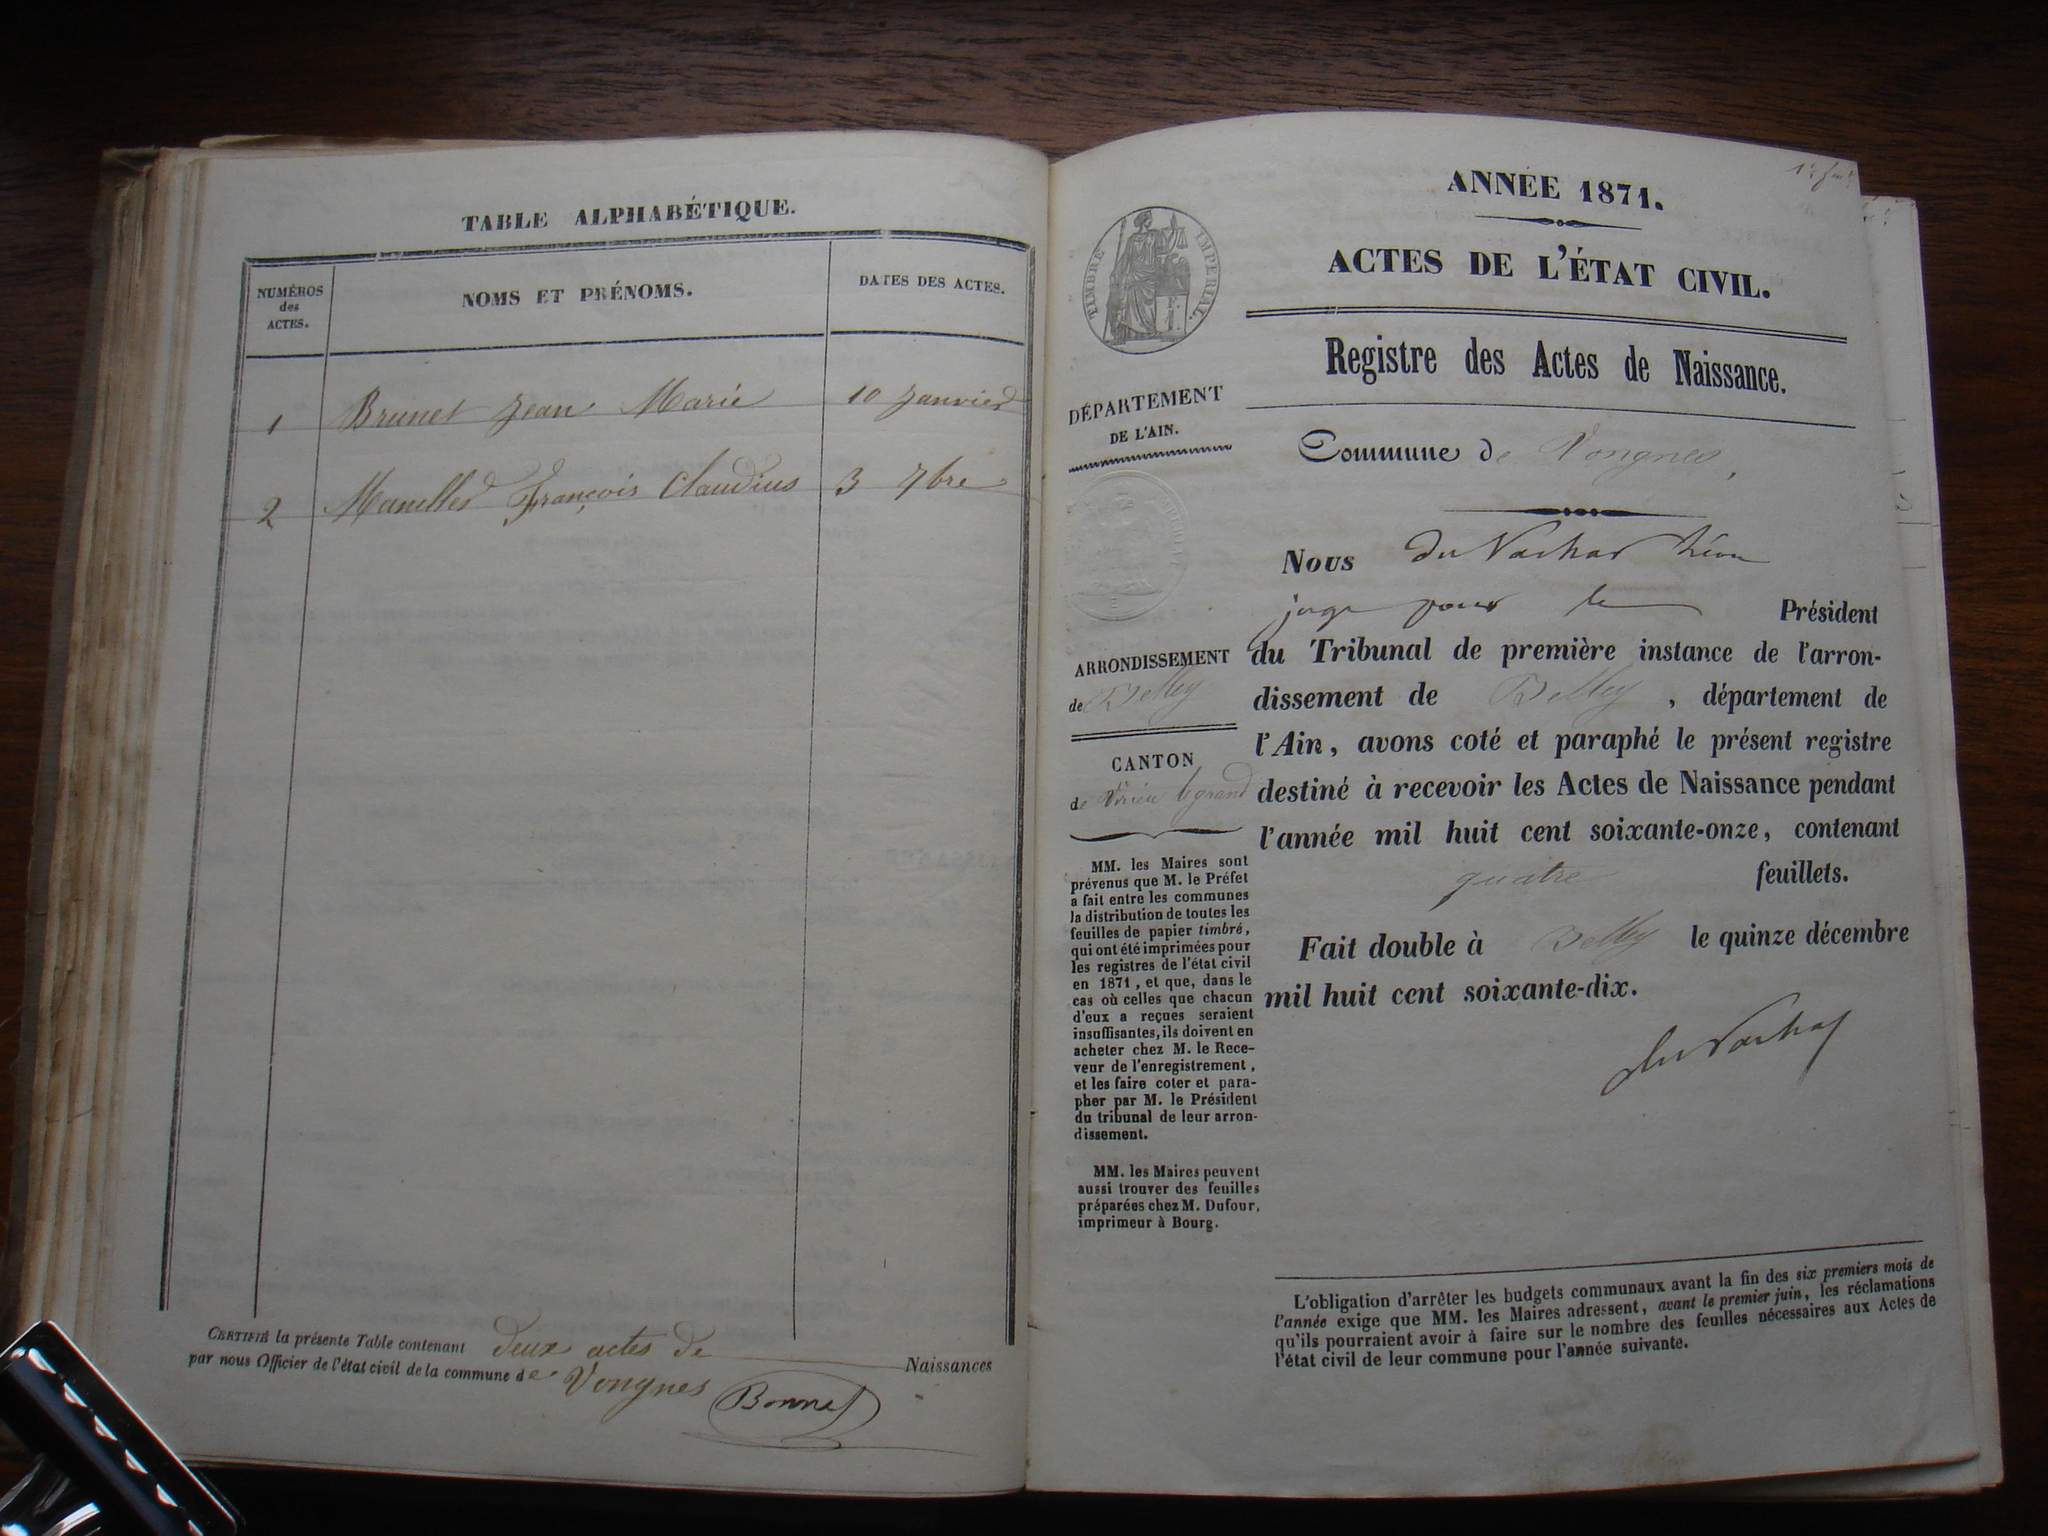 TABLE ALPHABÉTIQUE.
NUMÉROS
des
ACTES.
NOMS ET PRÉNOMS.
DATES DES ACTES.
1 Brunet Jean Marie 10 Janvier
2 François Claudius 3 7bre
CERTIFIÉ la présente Table contenant deux actes de Naissances
par nous Officier de l'état civil de la commune de Vongnes
Bonnet
1er
ANNÉE 1871.
ACTES DE L'ÉTAT CIVIL.
Registre des Actes de Naissance.
TIMBRE IMPERIAL.
DÉPARTEMENT
DE L'AIN.
ARRONDISSEMENT
de Belley
CANTON
de Virieu legrand
MM. les Maires sont
prévenus que M. le Préfet
a fait entre les communes
la distribution de toutes les
feuilles de papier timbré,
qui ont été imprimées pour
les registres de l'état civil
en 1871, et que, dans le
cas où celles que chacun
d'eux a reçues seraient
insuffisantes, ils doivent en
acheter chez M. le Rece-
veur de l'enregistrement,
et les faire coter et para-
pher par M. le Président
du tribunal de leur arron-
dissement.
MM. les Maires peuvent
aussi trouver des feuilles
préparées chez M. Dufour,
imprimeur à Bourg.
Commune de Vongnes,
Nous du Vachat Léon
juge pour le Président
du Tribunal de première instance de l'arron-
dissement de Belley, département de
l'Ain, avons coté et paraphé le présent registre
destiné à recevoir les Actes de Naissance pendant
l'année mil huit cent soixante-onze, contenant
quatre feuillets.
Fait double à Belley le quinze décembre
mil huit cent soixante-dix.
du Vachat
L'obligation d'arrêter les budgets communaux avant la fin des six premiers mois de
l'année exige que MM. les Maires adressent, avant le premier juin, les réclamations
qu'ils pourraient avoir à faire sur le nombre des feuilles nécessaires aux Actes de
l'état civil de leur commune pour l'année suivante.